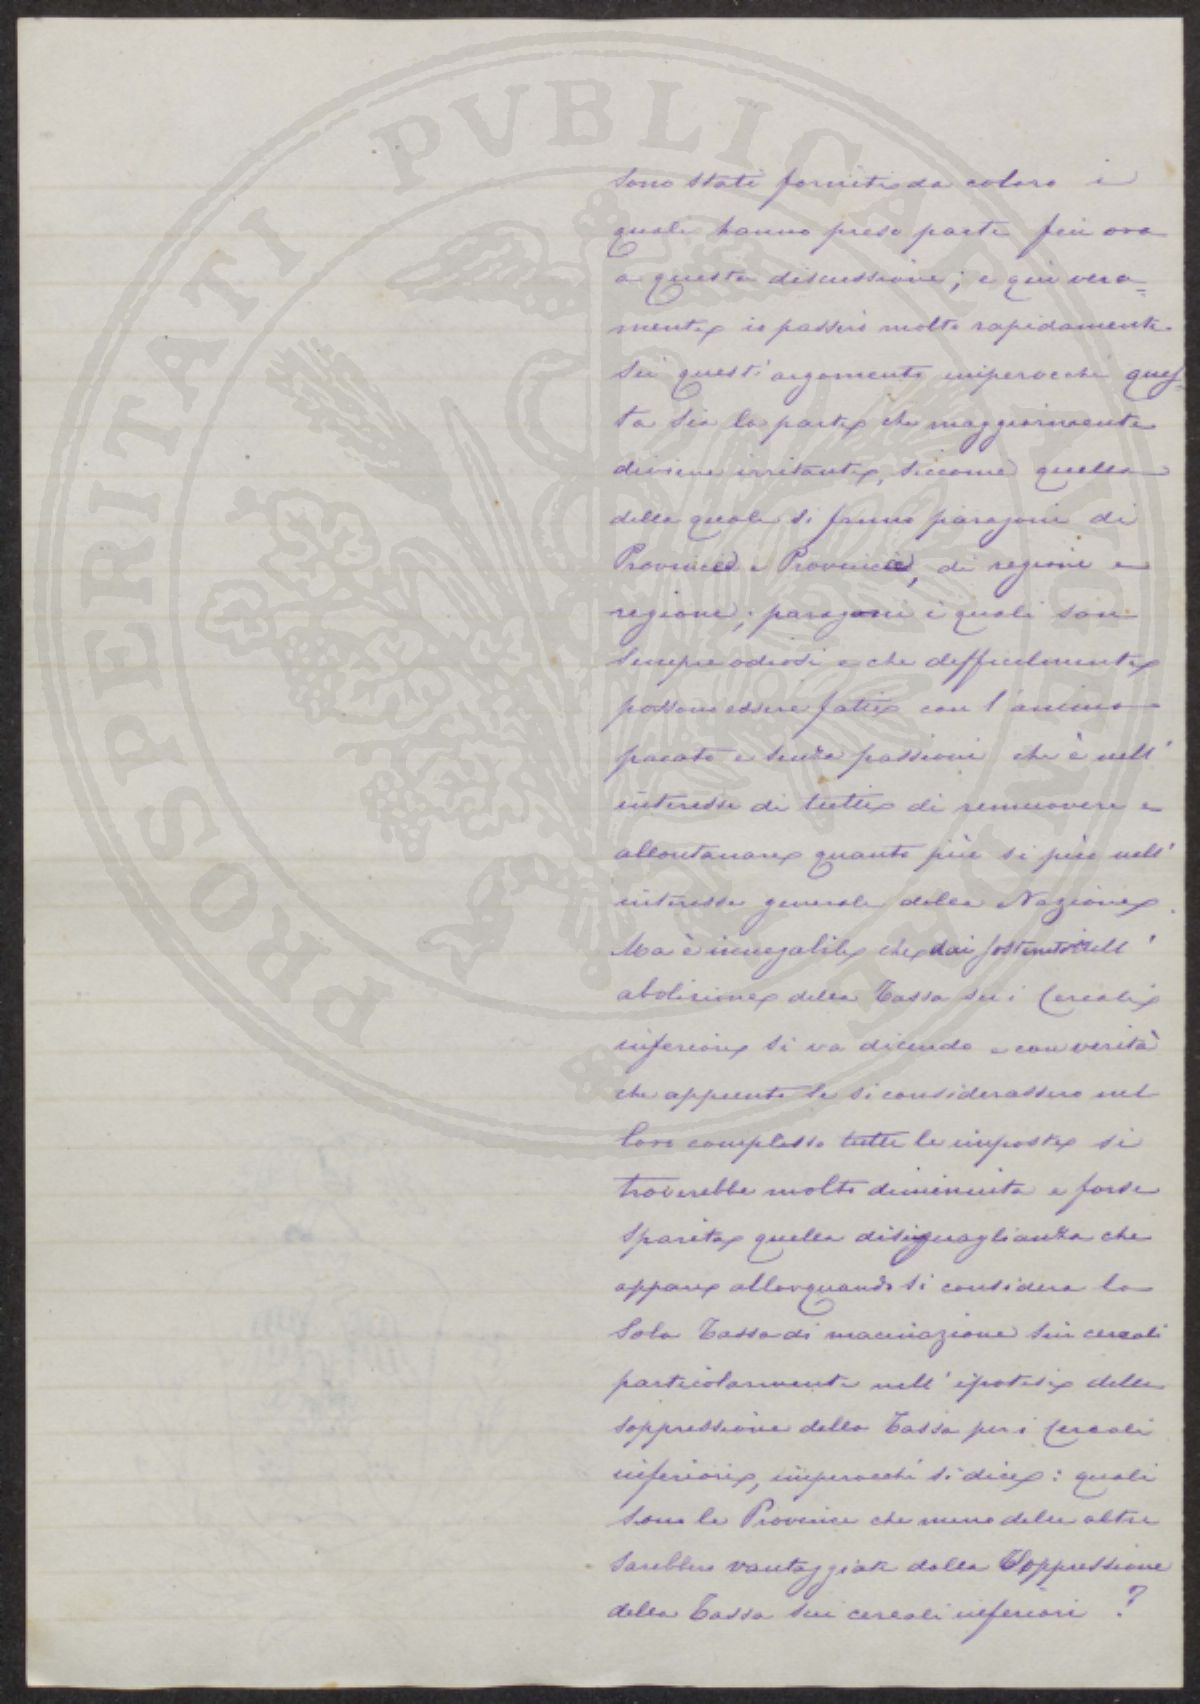 PROSPERITATI PVBLICAE AVGENDAE
sono stati forniti da coloro i
quali hanno preso parte fin ora
a questa discussione; e qui vera=
mente io passerò molto rapidamente
su quest'argomento imperocchè ques-
ta sia la parte che maggiormente
diviene irritante, siccome quella
della quale si fanno paragoni di
Provincie e Provincie, di regioni e
regione; paragoni i quali son
sempre odiosi e che difficilmente
possono essere fatti con l'animo
pacato e senza passioni che è nell'
interesse di tutti di remuovere e
allontanare quanto più si può nell'
interesse generale della Nazione.
Ma è innegabile che dai sostenitori dell'
abolizione della Tassa su i Cereali
inferiori si va dicendo e con verità
che appunto se si considerassero nel
loro complesso tutte le imposte si
troverebbe molto diminuita e forse
sparita quella disuguaglianza che
appare allorquando si considera la
sola Tassa di macinazione sui cereali
particolarmente nell'ipotesi della
soppressione della Tassa per i Cereali
inferiori, imperocchè si dice: quali
sono le Provincie che meno delle altre
sarebbero vantaggiate dalla Soppressione
della Tassa sui cereali inferiori?